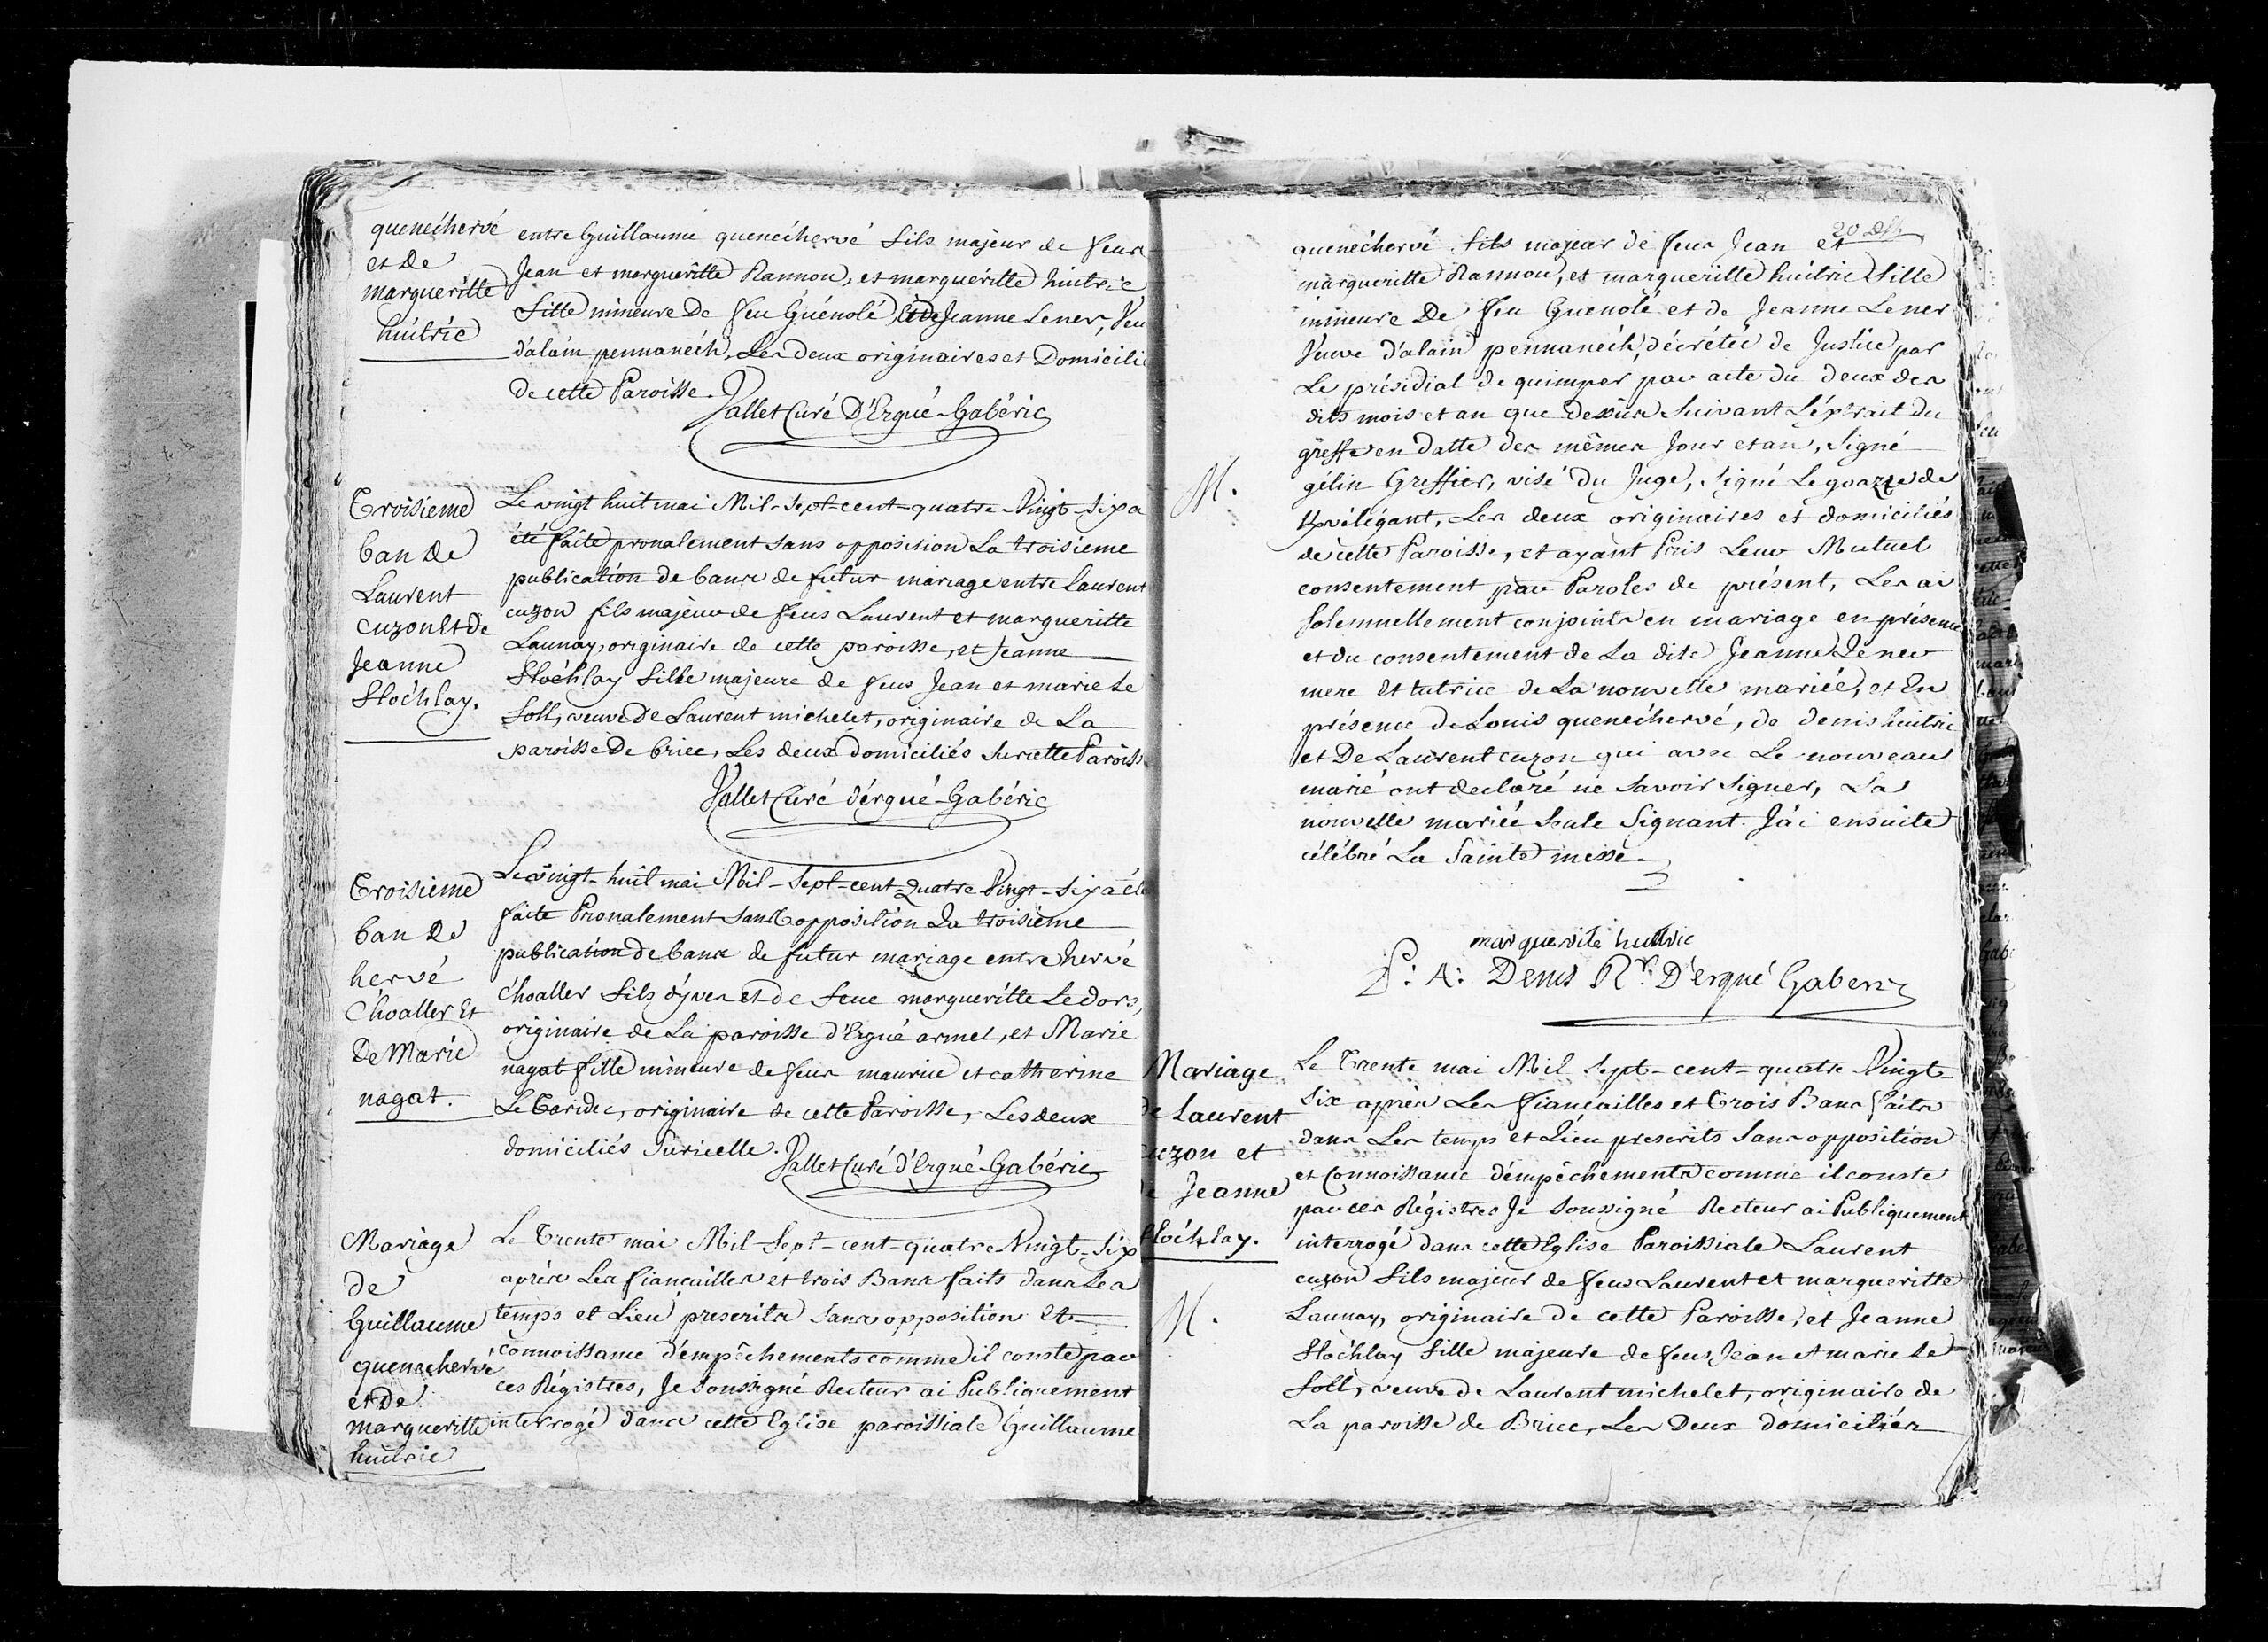 quenéchervé
et de
margueritte
huitric
entre Guillaume quenéchervé fils majeur de feus
Jean et margueritte Rannou, et margueritte huitric
fille mineure De feu Guénolé, et de Jeanne Lener, veu
d'alain pennanéch, Les deux originaires et Domicilié
de cette Paroisse.
Vallet Curé D'Ergué-Gabéric
Troisieme
ban de
Laurent
cuzon Et de
Jeanne
Stoéhlay.
Le vingt huit mai Mil-sept-cent-quatre-Vingt-six a
été faite pronalement sans opposition La troisieme
publication de bans de futur mariage entre Laurent
cuzon fils majeur de feus Laurent et margueritte
Launay, originaire de cette paroisse, et Jeanne
Stoéhlay fille majeure de feus Jean et marie Le
Foll, veuve De Laurent michelet, originaire de La
paroisse De briec, Les deux domiciliés sur cette Paroiss
Vallet Curé d'érgué-Gabéric
Troisieme
ban de
hervé
C'hoaller Et
De Marie
nagat.
Le vingt-huit mai Mil-sept-cent-Quatre-Vingt-six a été
faite Pronalement sans opposition La troisieme
publication de bans de futur mariage entre hervé
c'hoaller fils d'yves et de feue margueritte Le dors,
originaire de La paroisse d'Ergué armel, et Marie
nagat fille mineure de feus maurice et catherine
Le Caridec, originaire de cette Paroisse, Les deux
domiciliés sur icelle.
Vallet Curé d'Ergué-Gabéric
Mariage
de
Guillaume
quenechervé
et De
margueritte
huitric
Le Trente mai Mil-Sept-cent-quatre Vingt-Six
après Les fiançailles et trois Bans faits dans Les
temps et Lieu prescrits sans opposition et
connoissance d'empêchements comme il conste par
ces Régistres, Je soussigné Recteur ai Publiquement
interrogé dans cette Eglise paroissiale Guillaume
20
quenéchervé fils majeur de feus Jean et
margueritte Rannou, et margueritte huitric fille
mineure De feu Guenolé et de Jeanne Lener
Veuve d'alain pennanéch, décrétée de Justice par
Le présidial de quimper par acte du deux des
dits mois et an que dessus suivant L'éxtrait du
greffe en datte des mêmes Jour et an, Signé
gélin Greffier, visé du Juge, signé Le goazre de
Kervélégant, Les deux originaires et domiciliés
de cette Paroisse, et ayant Pris Leur Mutuel
consentement par Paroles de présent, Les ai
solemnellement conjoints en mariage en présence
et du consentement de La dite Jeanne Lener
mere Et tutrice de La nouvelle mariée, et En
présence de Louis quenéchervé, de denis huitric
et De Laurent cuzon qui avec Le nouveau
marié ont declaré ne savoir signer, La
nouvelle mariée seule Signant. J'ai ensuite
célébré La Sainte messe.
M.
marguerite huitric
P: A: Denis Rr. D'ergué Gaberic
Mariage
de Laurent
cuzon et
de Jeanne
Stoéhlay.
M.
Le Trente mai Mil Sept-cent-quatre Vingt-
Six après Les fiançailles et Trois Bans faits
dans Les temps et Lieu prescrits sans opposition
et Connoissance d'empêchements comme il conste
par ces Régistres Je soussigné Recteur ai Publiquement
interrogé dans cette Eglise Paroissiale Laurent
cuzon fils majeur de feus Laurent et margueritte
Launay, originaire de cette Paroisse, et Jeanne
Stoéhlay fille majeure de feus Jean et marie Le
Foll, veuve de Laurent michelet, originaire de
La paroisse de Briec, Les Deux domiciliés